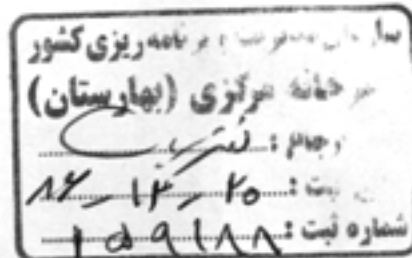 سازمان مدیریت و برنامه ریزی کشور
دبیرخانه مرکزی (بهارستان)
مراجع :
تاریخ ثبت : ۸۲-۱۲-۲۰
شماره ثبت : ۱۵۹۱۸۸